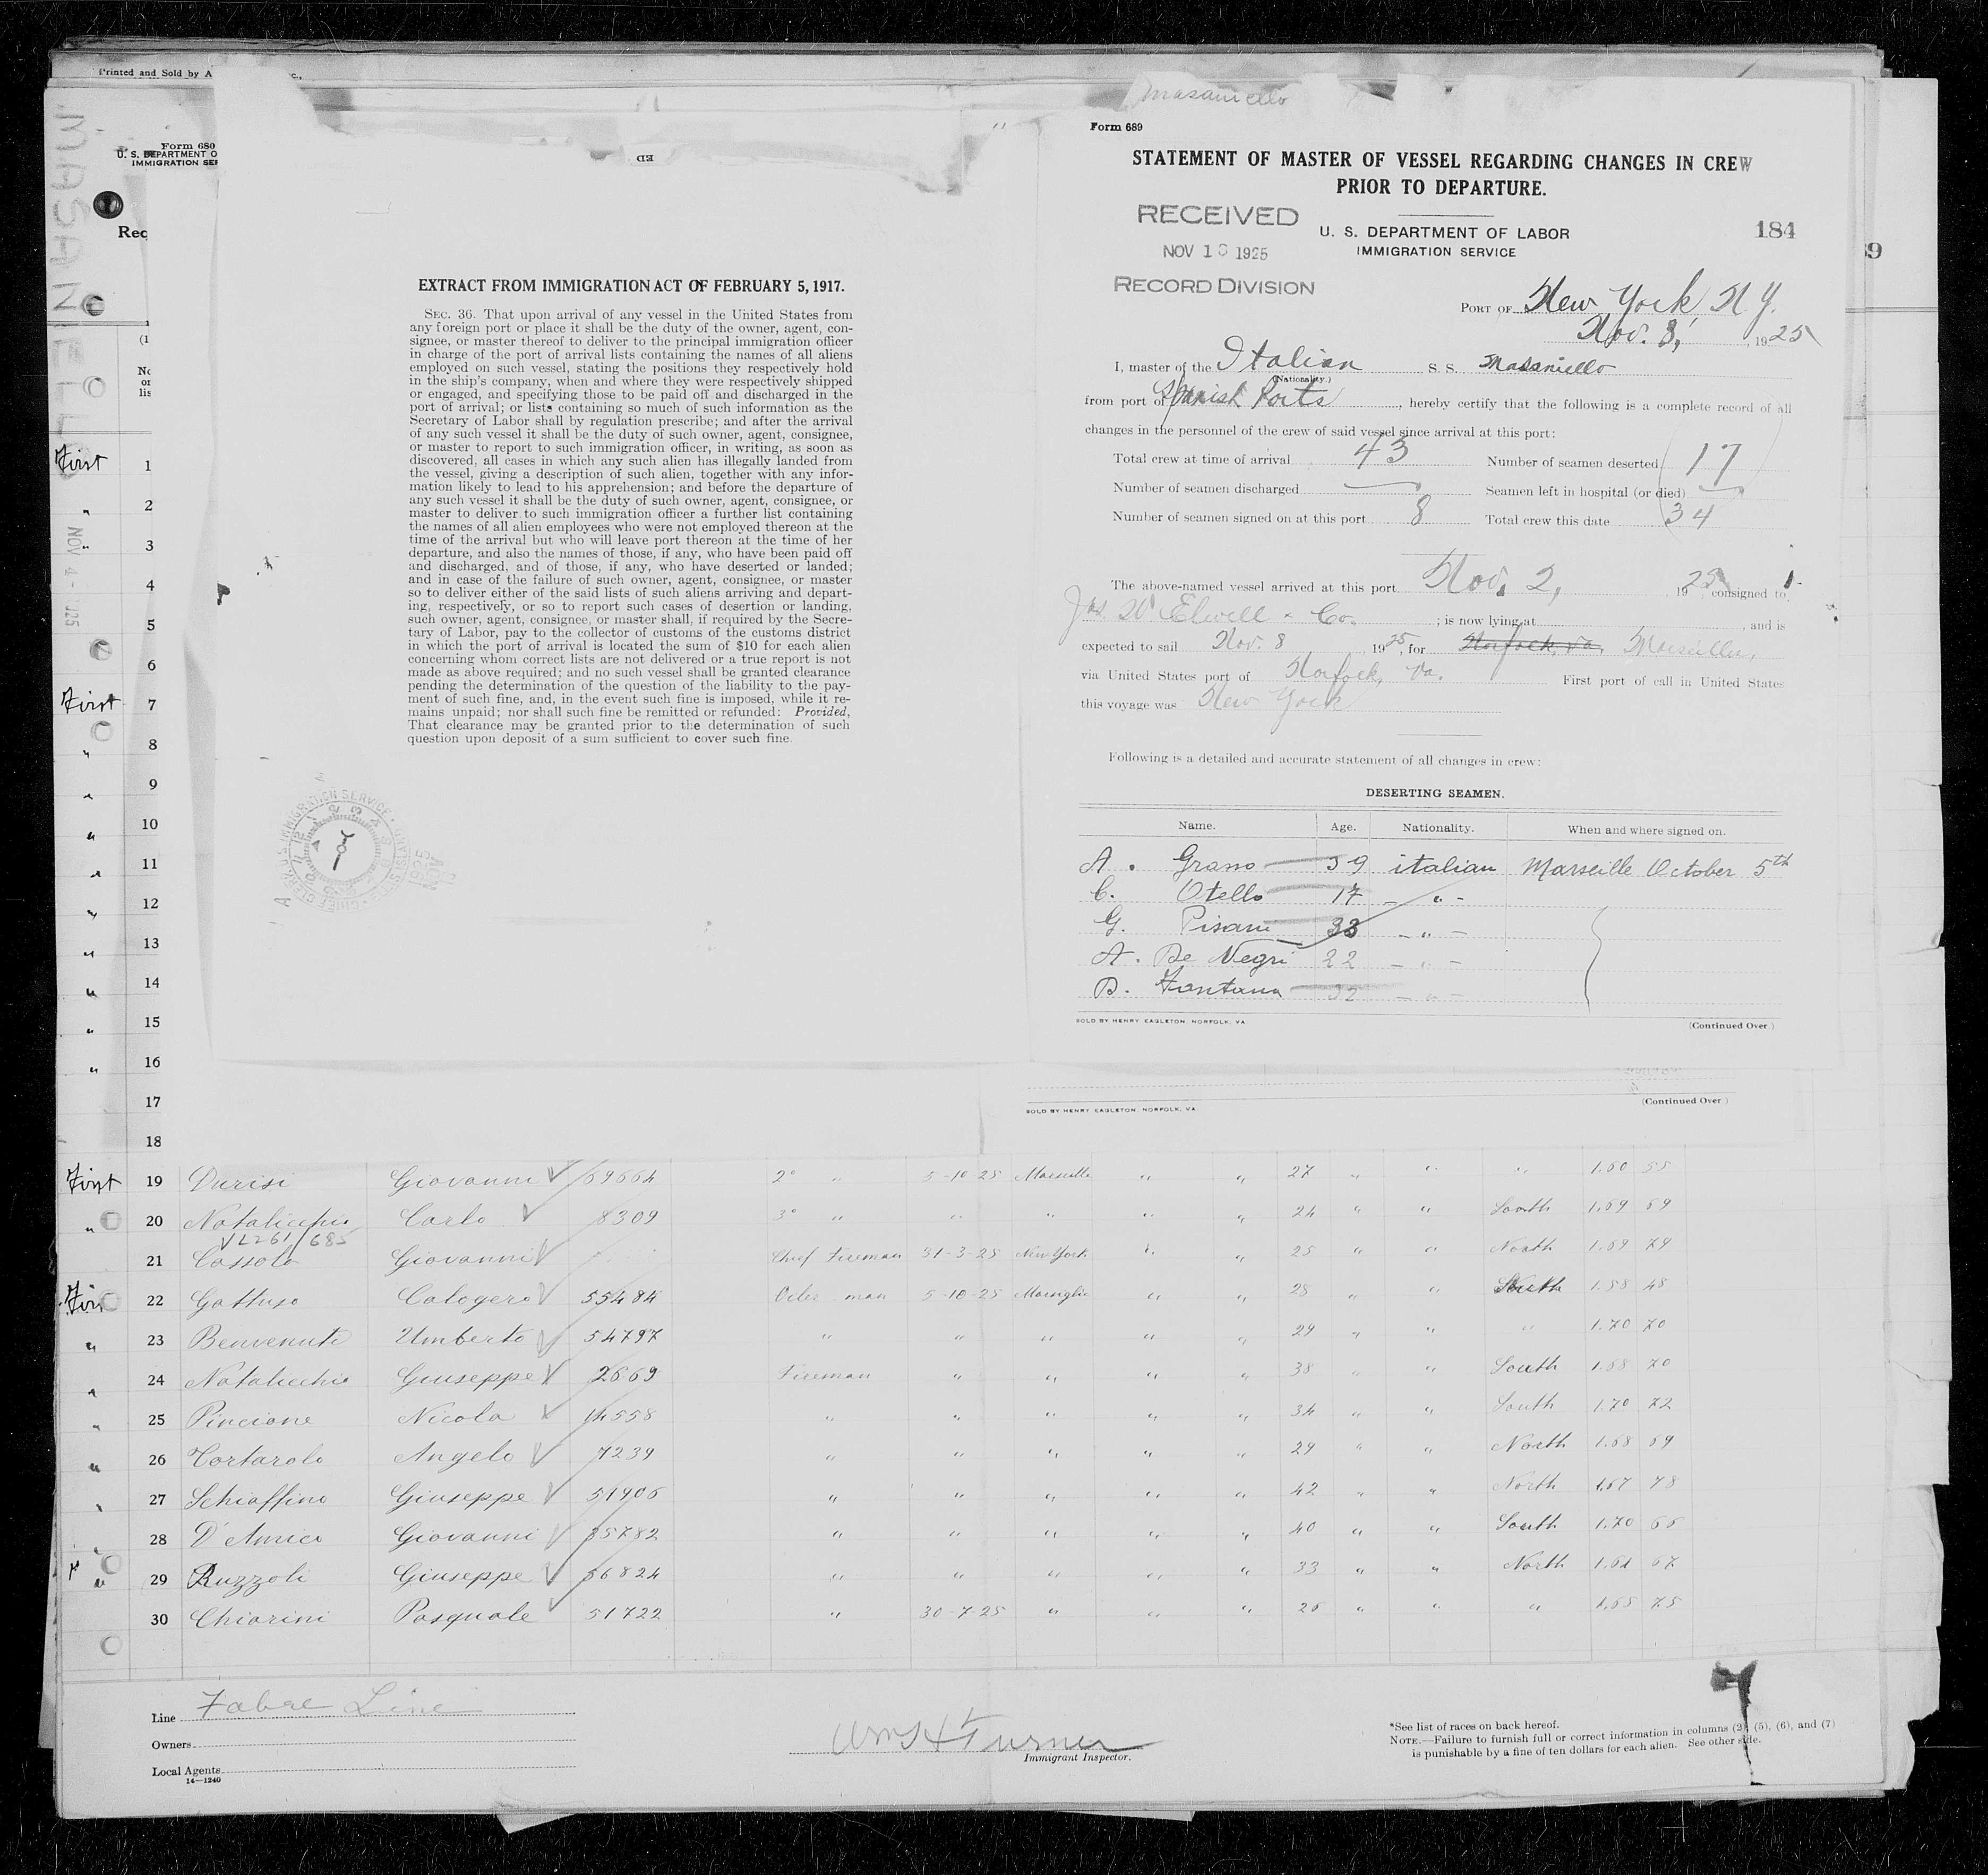 Printed and Sold by A
c.,
MASANIELLO
NOV 4 - 1925
Form 680
U. S. DEPARTMENT O
IMMIGRATION SER
Rec
(1
No
on
lis
ED
EXTRACT FROM IMMIGRATION ACT OF FEBRUARY 5, 1917.
SEC. 36. That upon arrival of any vessel in the United States from
any foreign port or place it shall be the duty of the owner, agent, con-
signee, or master thereof to deliver to the principal immigration officer
in charge of the port of arrival lists containing the names of all aliens
employed on such vessel, stating the positions they respectively hold
in the ship's company, when and where they were respectively shipped
or engaged, and specifying those to be paid off and discharged in the
port of arrival; or lists containing so much of such information as the
Secretary of Labor shall by regulation prescribe; and after the arrival
of any such vessel it shall be the duty of such owner, agent, consignee,
or master to report to such immigration officer, in writing, as soon as
discovered, all cases in which any such alien has illegally landed from
the vessel, giving a description of such alien, together with any infor-
mation likely to lead to his apprehension; and before the departure of
any such vessel it shall be the duty of such owner, agent, consignee, or
master to deliver to such immigration officer a further list containing
the names of all alien employees who were not employed thereon at the
time of the arrival but who will leave port thereon at the time of her
departure, and also the names of those, if any, who have been paid off
and discharged, and of those, if any, who have deserted or landed;
and in case of the failure of such owner, agent, consignee, or master
so to deliver either of the said lists of such aliens arriving and depart-
ing, respectively, or so to report such cases of desertion or landing,
such owner, agent, consignee, or master shall, if required by the Secre-
tary of Labor, pay to the collector of customs of the customs district
in which the port of arrival is located the sum of $10 for each alien
concerning whom correct lists are not delivered or a true report is not
made as above required; and no such vessel shall be granted clearance
pending the determination of the question of the liability to the pay-
ment of such fine, and, in the event such fine is imposed, while it re-
mains unpaid; nor shall such fine be remitted or refunded: Provided,
That clearance may be granted prior to the determination of such
question upon deposit of a sum sufficient to cover such fine.
Masaniello
Form 689
STATEMENT OF MASTER OF VESSEL REGARDING CHANGES IN CREW
PRIOR TO DEPARTURE.
RECEIVED
U. S. DEPARTMENT OF LABOR
184
IMMIGRATION SERVICE
NOV 1 1925
RECORD DIVISION
PORT OF New York N Y.
Nov. 8, 1925
I, master of the Italian S. S. Masaniello
(Nationality.)
from port of Spanish Ports, hereby certify that the following is a complete record of all
changes in the personnel of the crew of said vessel since arrival at this port:
Total crew at time of arrival 43 Number of seamen deserted 17
Number of seamen discharged — Seamen left in hospital (or died) —
Number of seamen signed on at this port 8 Total crew this date 34
The above-named vessel arrived at this port Nov. 2, 1925, consigned to
Jas. W. Elwell & Co. ; is now lying at , and is
expected to sail Nov. 8 1925, for Norfolk, Va. Marseilles,
via United States port of Norfolk, Va. First port of call in United States
this voyage was New York
Following is a detailed and accurate statement of all changes in crew:
DESERTING SEAMEN.
Name. Age. Nationality. When and where signed on.
A. Grasso 39 italian Marseille October 5th
C. Otello 17 - " -
G. Pisani 33 - " -
A. De Negri 22 - " -
B. Fontana 32 - " -
SOLD BY HENRY EAGLETON, NORFOLK, VA
(Continued Over)
SOLD BY HENRY EAGLETON, NORFOLK, VA
(Continued Over)
First 1
" 2
" 3
4
5
6
First 7
" 8
" 9
" 10
" 11
" 12
" 13
" 14
" 15
" 16
17
18
First 19 Durisi Giovanni 69664 2° " 5-10-25 Marseille " " 27 " " " 1.60 55
" 20 Natalicchio Carlo 8309 3° " " " " " 24 " " South 1.69 69
VL261/685
21 Cassola Giovanni Chief Fireman 31-3-25 New York " " 25 " " North 1.69 74
First 22 Gattuso Calogero 55484 Oiler man 5-10-25 Marsiglia " " 28 " " South 1.58 48
" 23 Benvenuti Umberto 54797 " " " " " 29 " " " 1.70 70
" 24 Natalicchio Giuseppe 2669 Fireman " " " " 38 " " South 1.68 70
" 25 Pincione Nicola 14558 " " " " " 34 " " South 1.70 72
" 26 Cortarolo Angelo 7239 " " " " " 29 " " North 1.68 69
" 27 Schiaffino Giuseppe 51906 " " " " " 42 " " North 1.67 78
" 28 D'Amico Giovanni 35782 " " " " " 40 " " South 1.70 65
" 29 Ruzzoli Giuseppe 36824 " " " " " 33 " " North 1.61 67
30 Chiarini Pasquale 51722 " 30-7-25 " " " 26 " " " 1.65 75
Line Fabre Line
Owners
Local Agents
14—1240
Wm H Turner
Immigrant Inspector.
*See list of races on back hereof.
NOTE.—Failure to furnish full or correct information in columns (2), (5), (6), and (7)
is punishable by a fine of ten dollars for each alien. See other side.